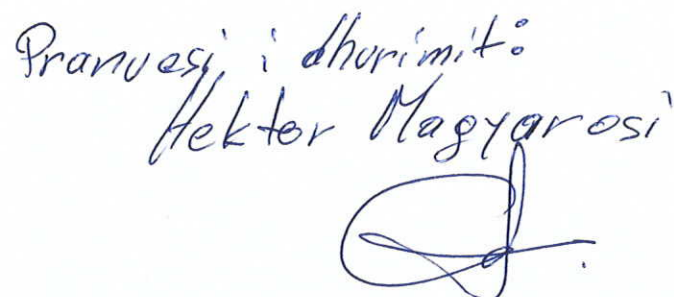 Pranuesi i dhurimit:
Hektor Magyarosi